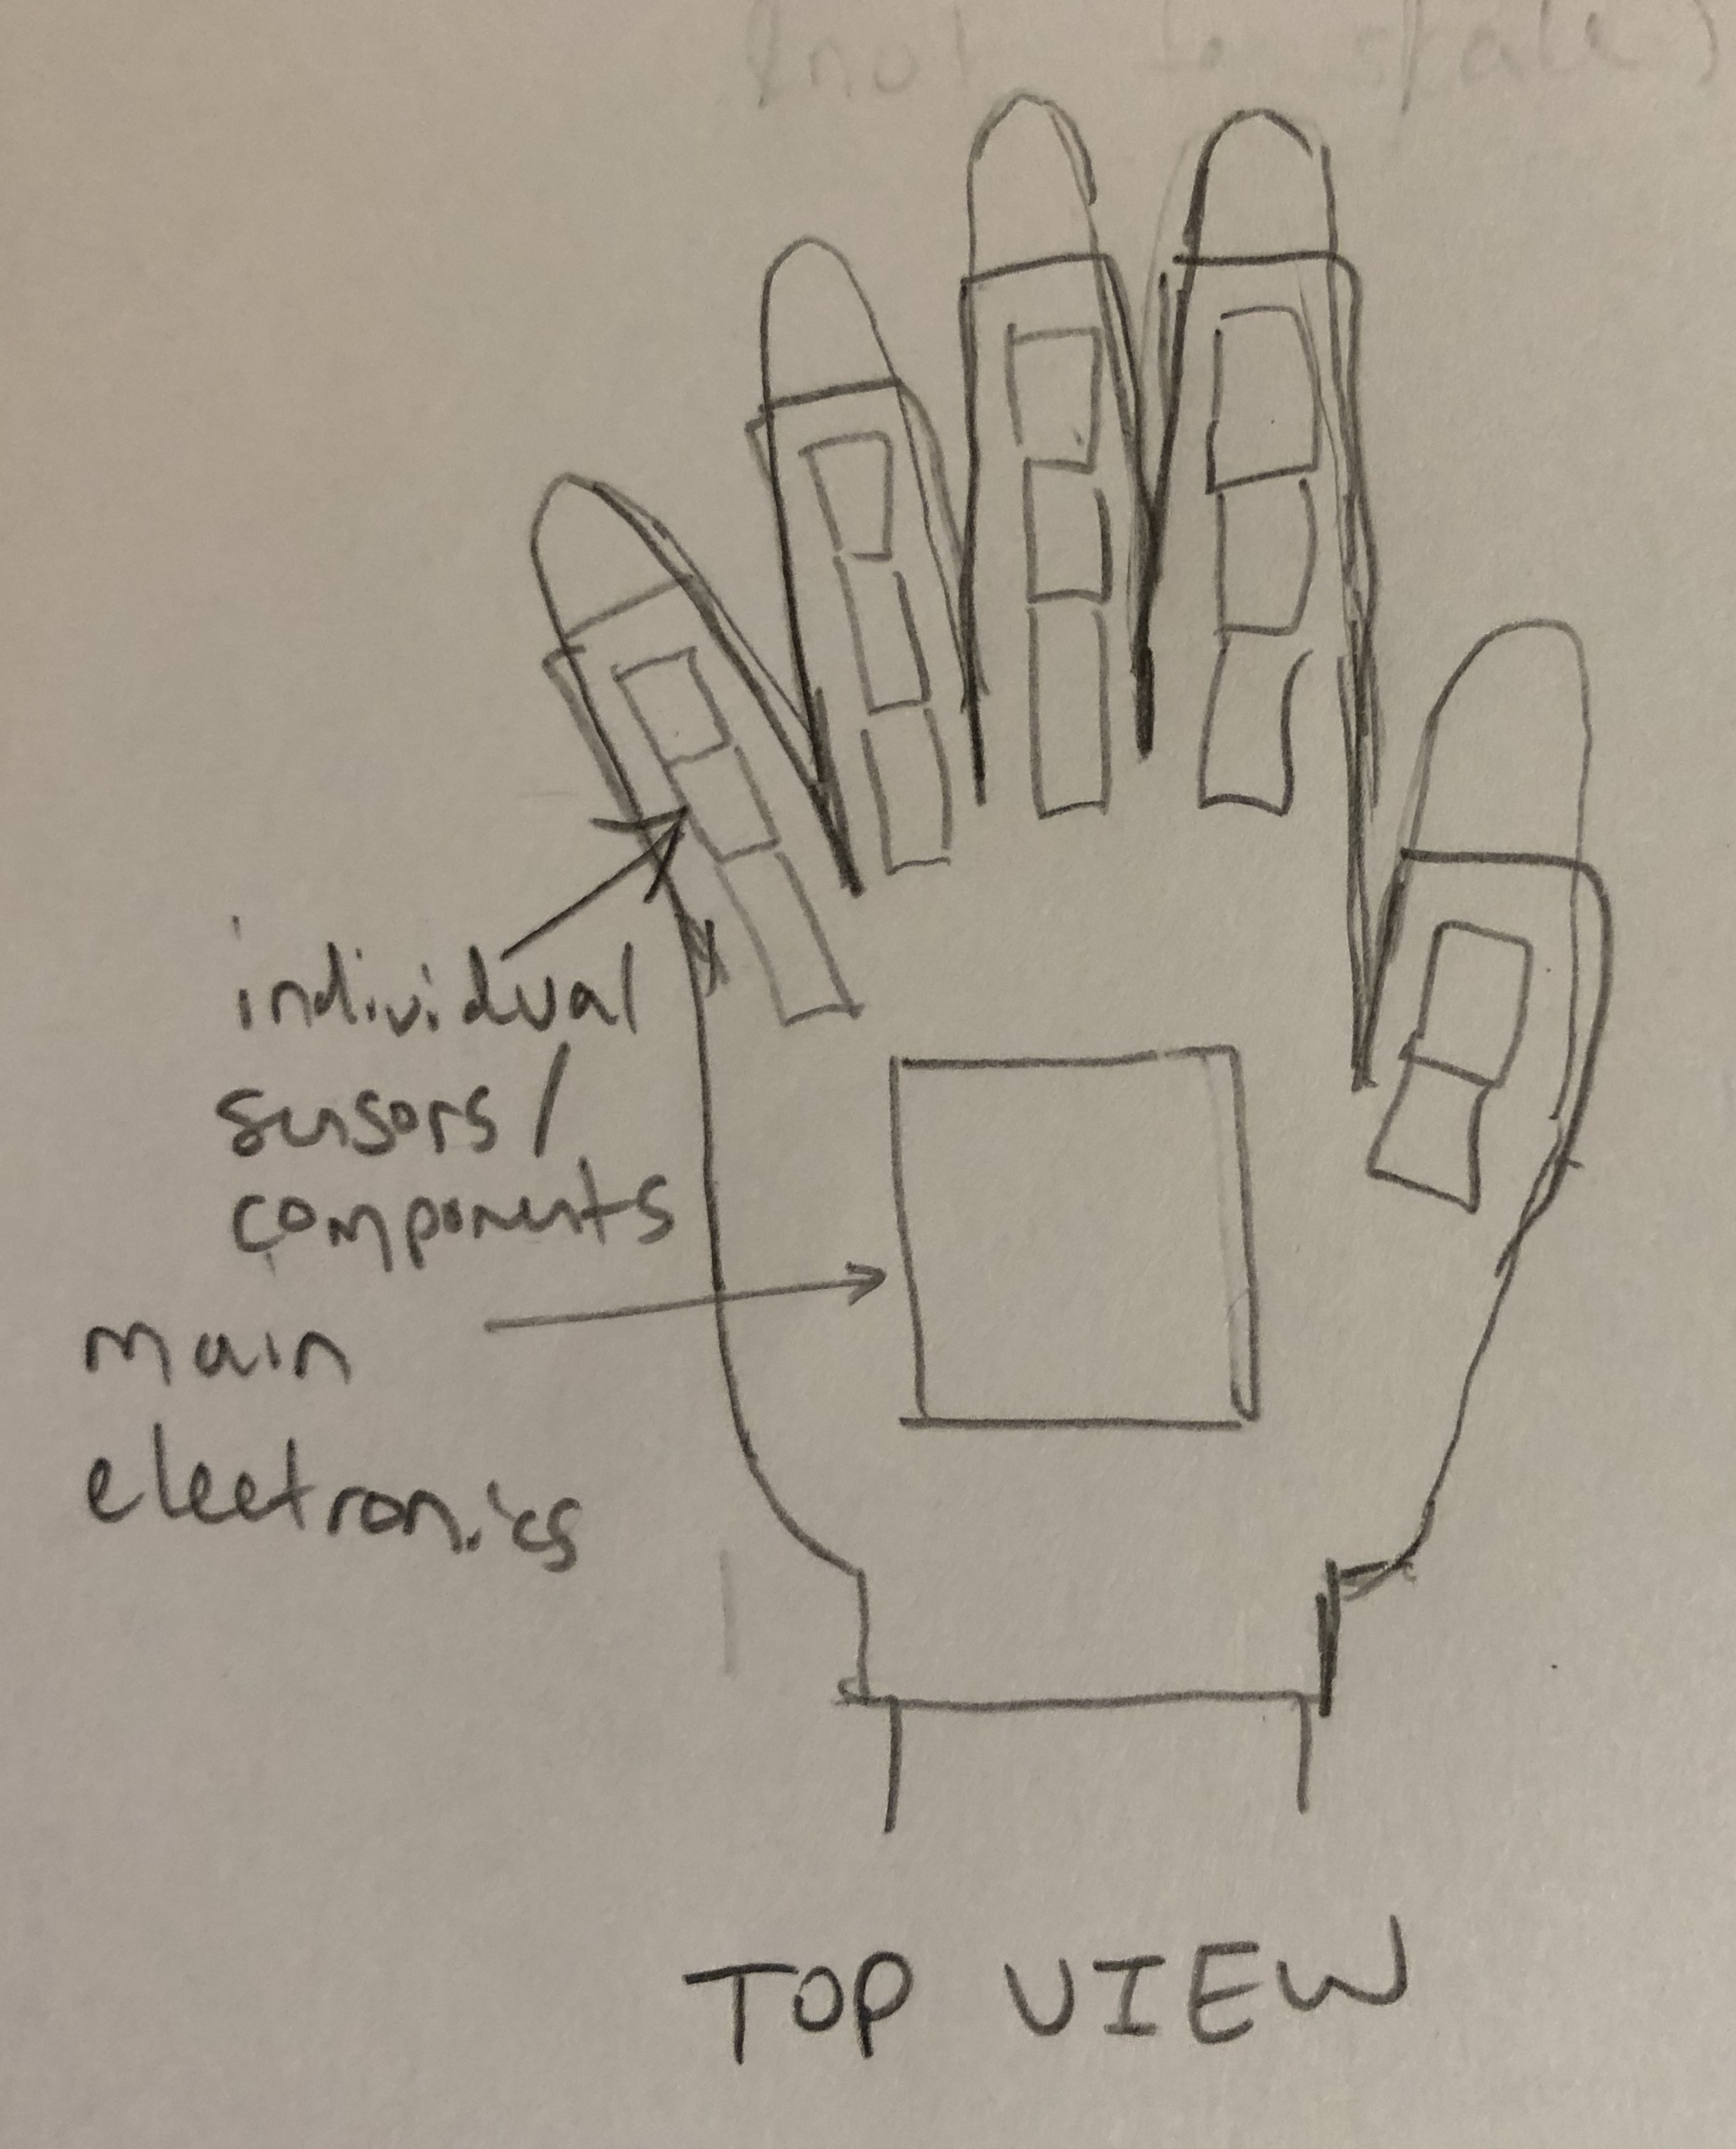 (not to scale)
individual
sensors/
components
main
electronics
TOP VIEW